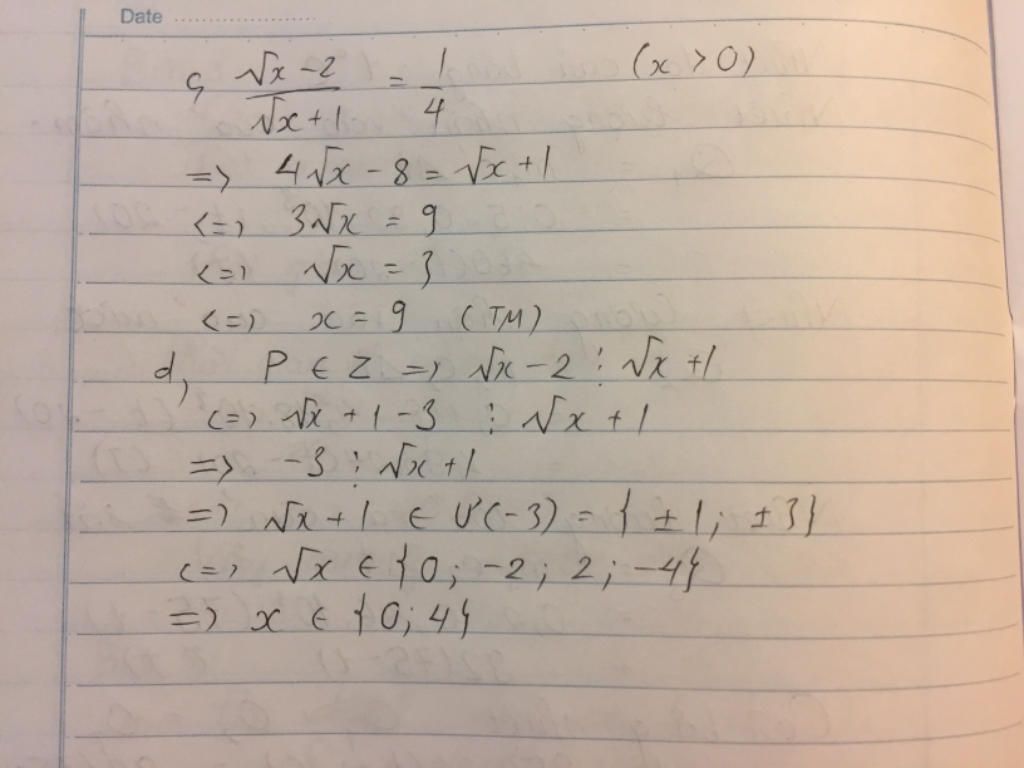 Date
c, (√x - 2)/(√x + 1) = 1/4 (x > 0)
=> 4√x - 8 = √x + 1
<=> 3√x = 9
<=> √x = 3
<=> x = 9 (TM)
d, P ∈ Z => √x - 2 ⋮ √x + 1
<=> √x + 1 - 3 ⋮ √x + 1
=> -3 ⋮ √x + 1
=> √x + 1 ∈ Ư(-3) = { ±1; ±3}
<=> √x ∈ {0; -2; 2; -4}
=> x ∈ {0; 4}